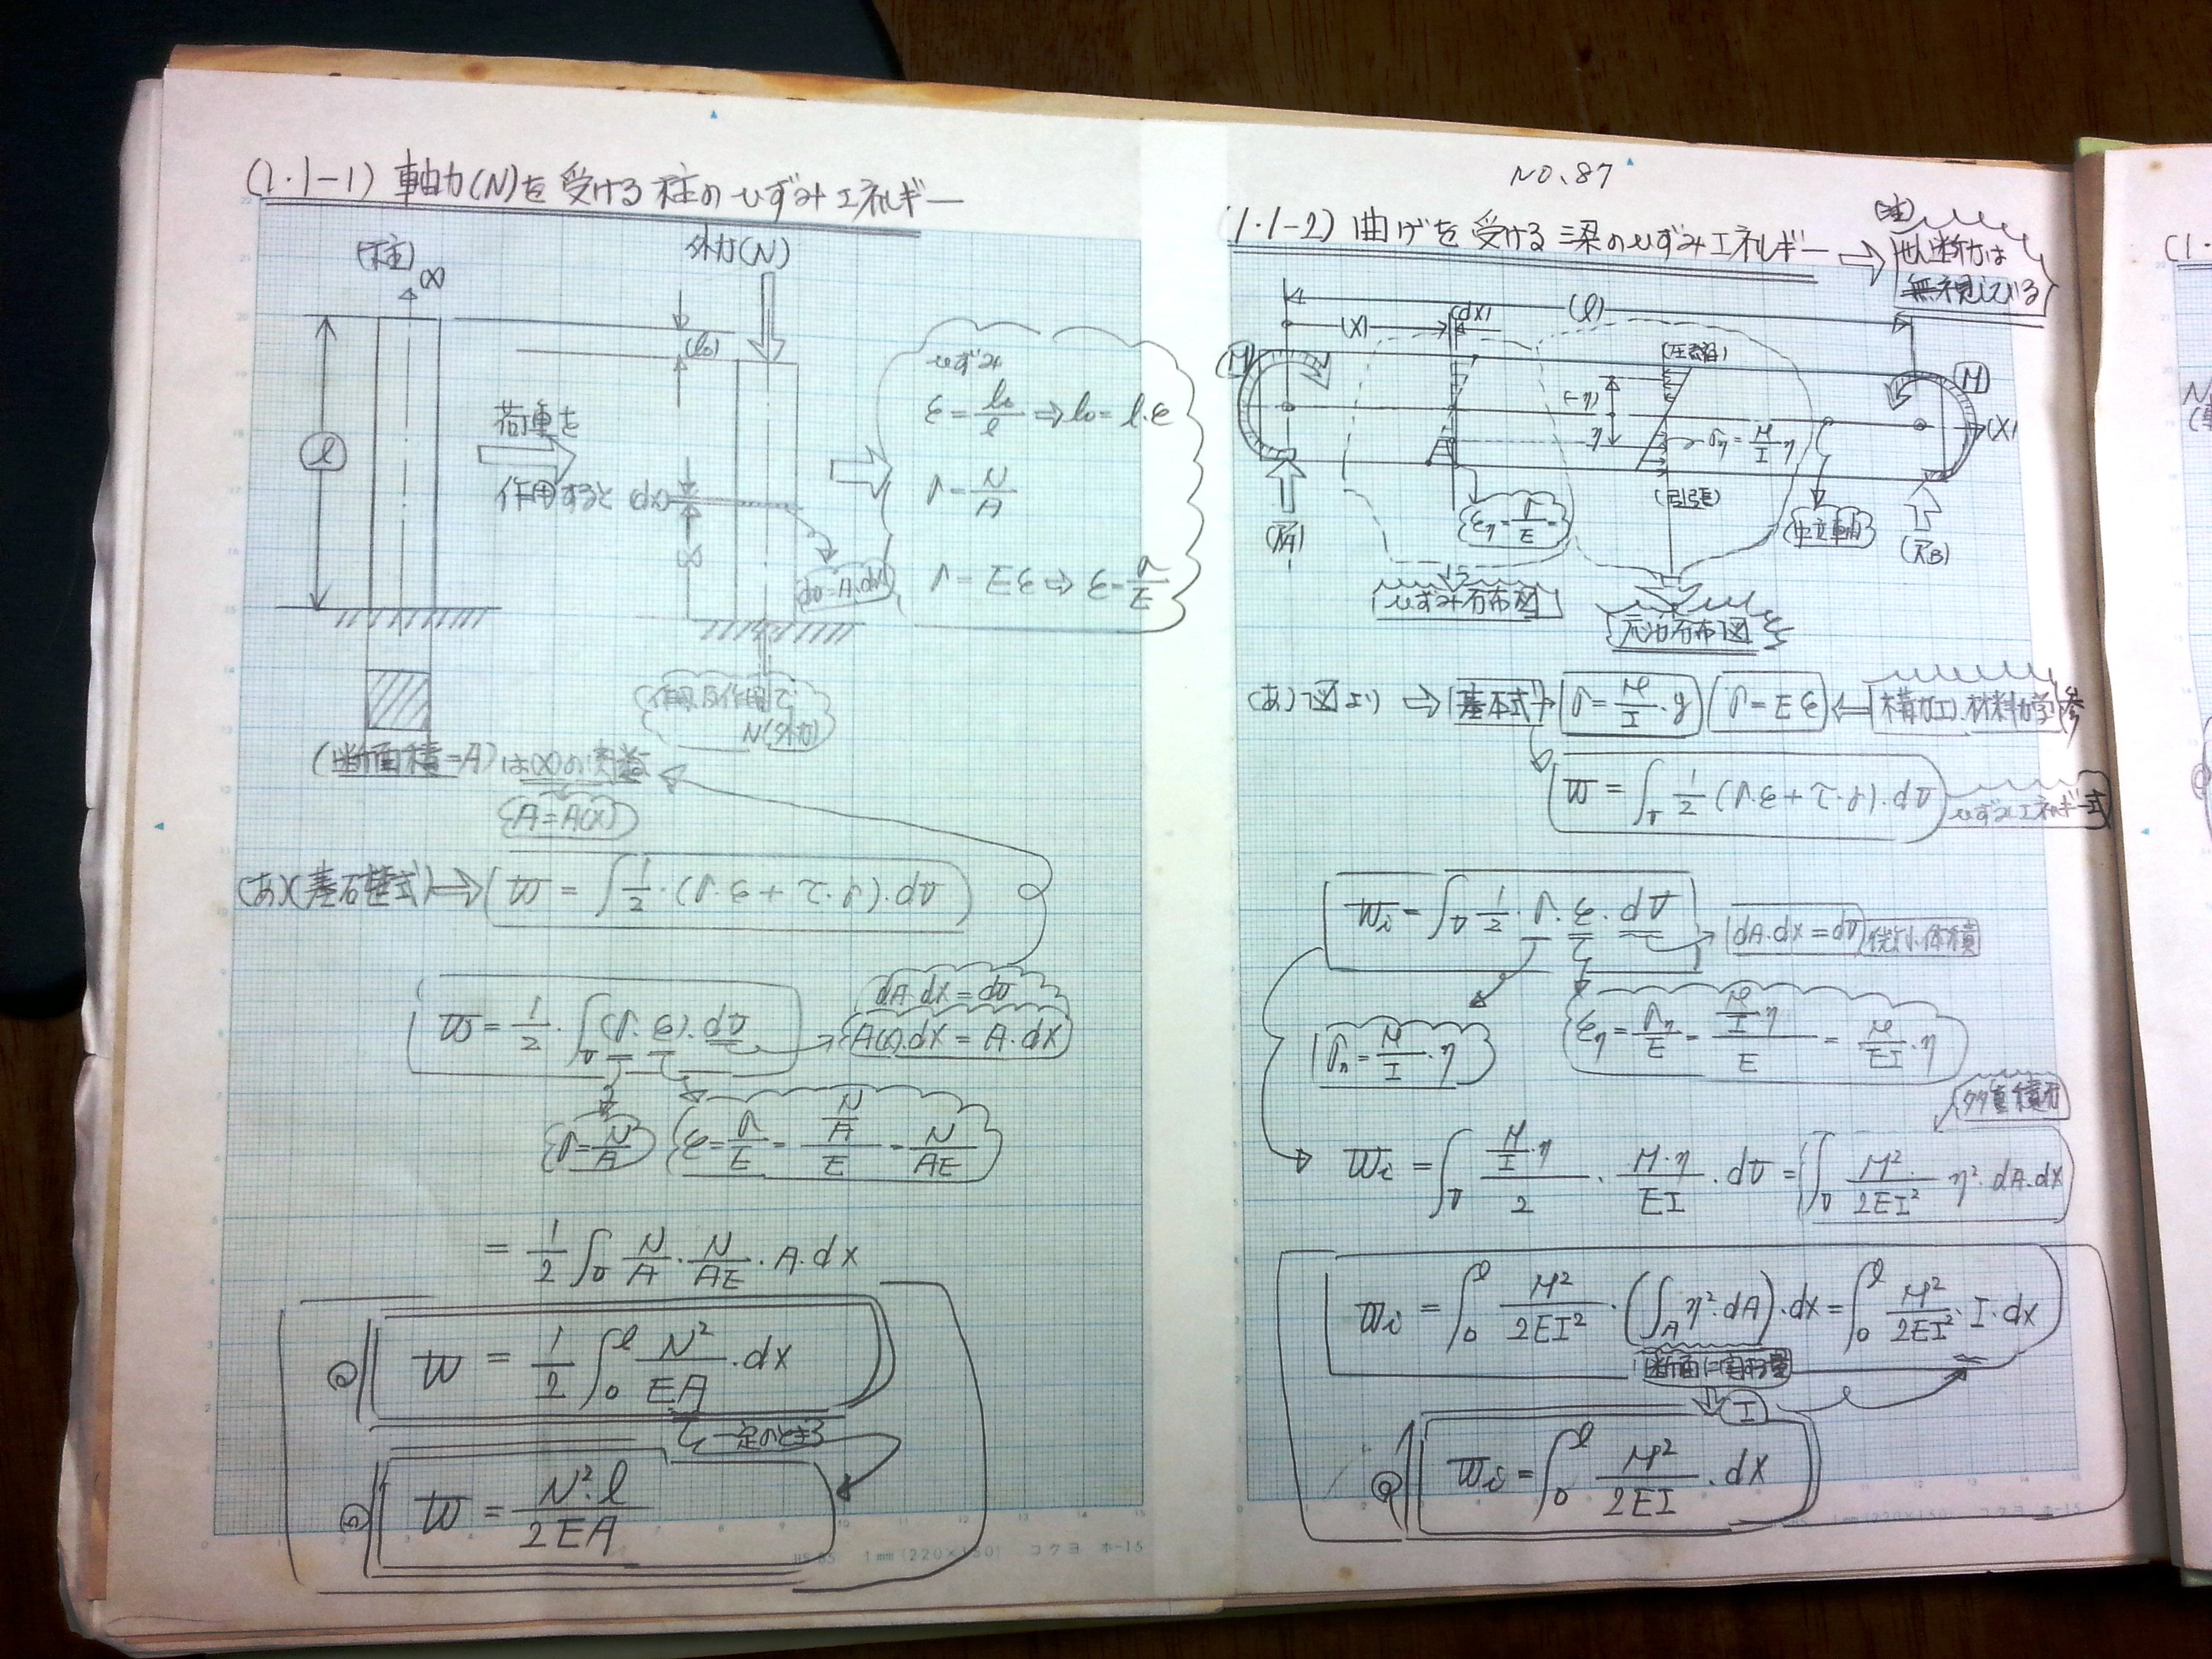 (1.1-1) 軸力(N)を受ける柱のひずみエネルギー
(柱)
(x)
外力(N)
(l₀)
l
荷重を
作用すると
(dx)
x
dV=A.dx
ひずみ
ε = l₀/l ⇒ l₀ = l.ε
σ = N/A
σ = Eε ⇒ ε = σ/E
作用反作用で
N(外力)
(断面積=A)は(x)の関数
A=A(x)
(あ)(基礎式) ⇒ W = ∫ 1/2・(σ・ε + τ・γ).dV
W = 1/2・∫v (σ・ε).dV
dA.dx = dV
A(x).dx = A.dx
σ = N/A
ε = σ/E = (N/A)/E = N/AE
= 1/2 ∫v N/A・N/AE・A.dx
W = 1/2 ∫₀^l N²/EA .dx
一定のとき
W = N².l/2EA
NO.87
(1.1-2) 曲げを受ける梁のひずみエネルギー ⇒
(注)
せん断力は
無視している
(l)
(x)
(dx)
(圧縮)
M
M
(-η)
η
ση = M/I η
(x)
(引張)
εη = σ/E
中立軸
(RA)
(RB)
ひずみ分布図
応力分布図
(あ)図より ⇒ 基本式 → σ = M/I・y σ = Eε ⇐ 構力I.材料力学参
W = ∫v 1/2 (σ.ε + τ.γ).dV ひずみエネルギー式
Wi = ∫v 1/2・σ.ε.dV
dA.dx = dV 微小体積
ση = M/I・η
εη = ση/E = (M/I・η)/E = M/EI・η
多重積分
Wi = ∫v (M/I・η)/2・M・η/EI.dV = ∫v M²/2EI² η².dA.dx
Wi = ∫₀^l M²/2EI²・(∫A η².dA).dx = ∫₀^l M²/2EI²・I.dx
断面二次
I
Wi = ∫₀^l M²/2EI .dx
1mm(220×150) コクヨ ホ-15